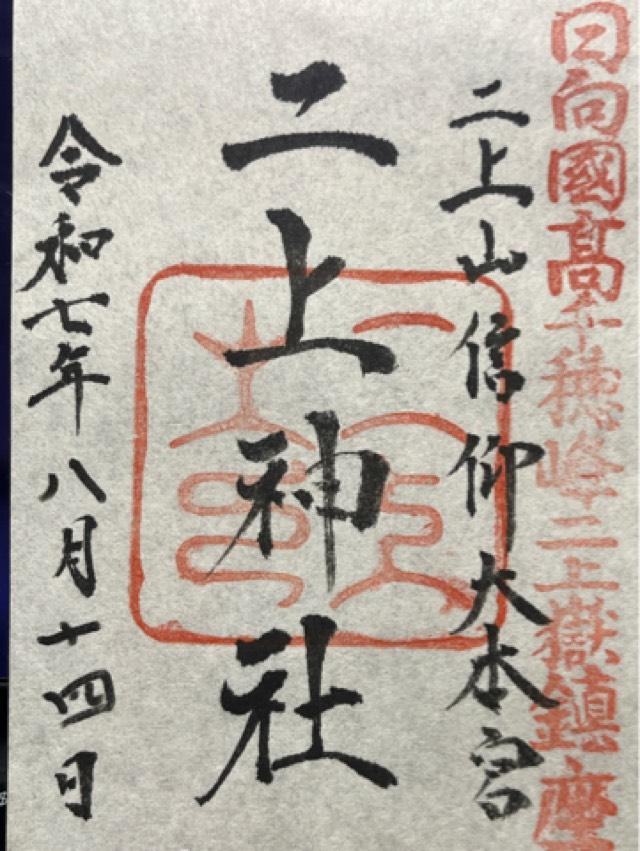 日向國髙千穂峰二上嶽鎮座
二上山信仰大本宮
二上神社
令和七年八月十四日